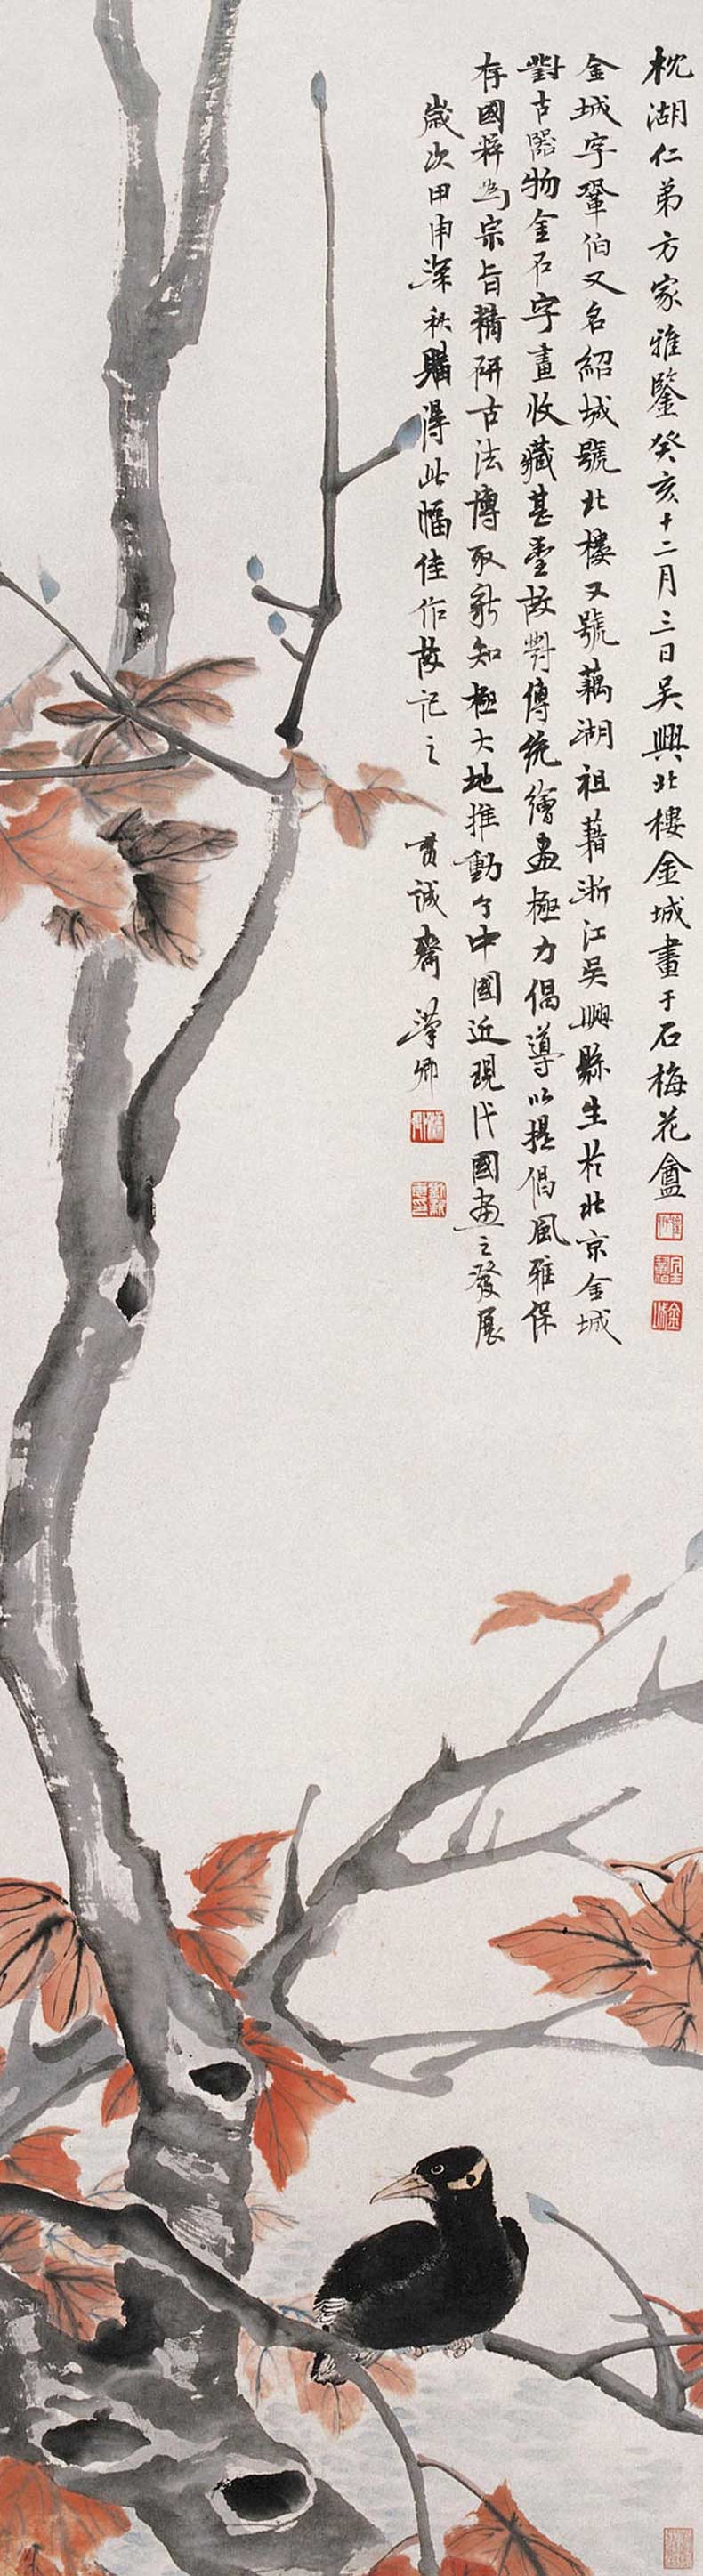 枕湖仁弟方家雅鑒癸亥十二月三日吳興北樓金城畫于石梅花盦
金城字鞏伯又名紹城號北樓又號藕湖祖藉浙江吳興縣生於北京金城
對古器物金石字畫收藏甚豐故對傳統繪畫極力倡導以提倡風雅保
存國粹為宗旨精研古法博取新知極大地推動了中國近現代國畫之發展
歲次甲申深秋購得此幅佳作故記之
貫誠齋漢卿
金城